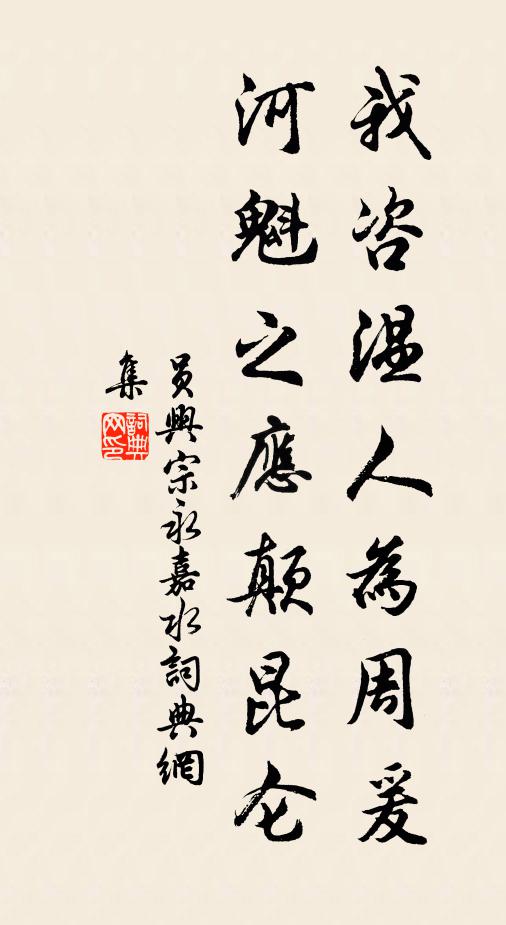 我咨温人為周爰
河魁之應顛昆仑
員興宗永嘉水詞典網
集
詞典
网印